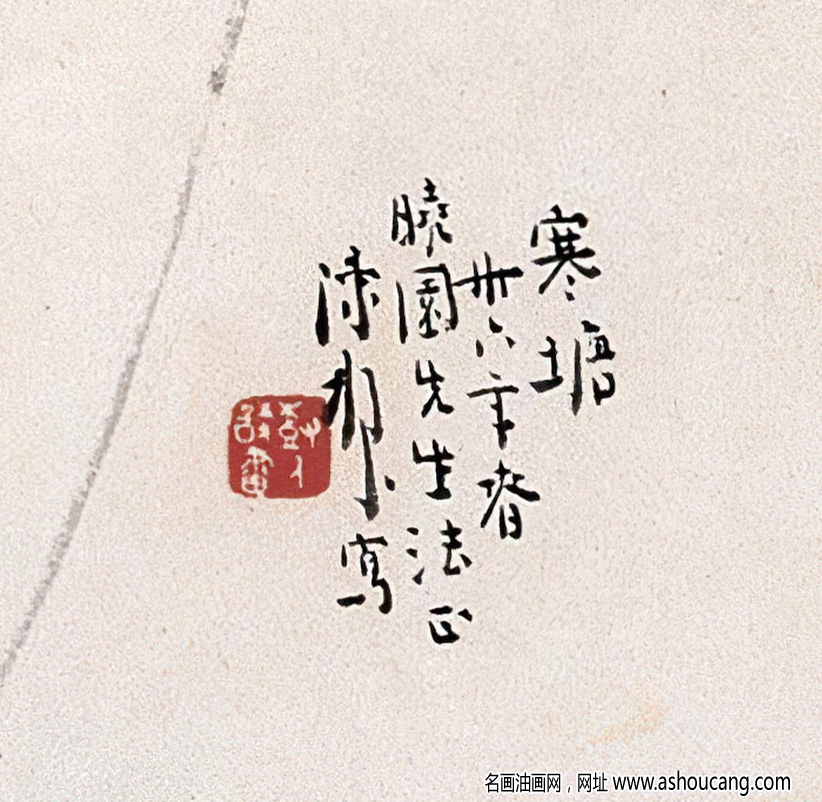 寒塘
卅六年春
曉園先生法正
寫
名画油画网，网址 www.ashoucang.com